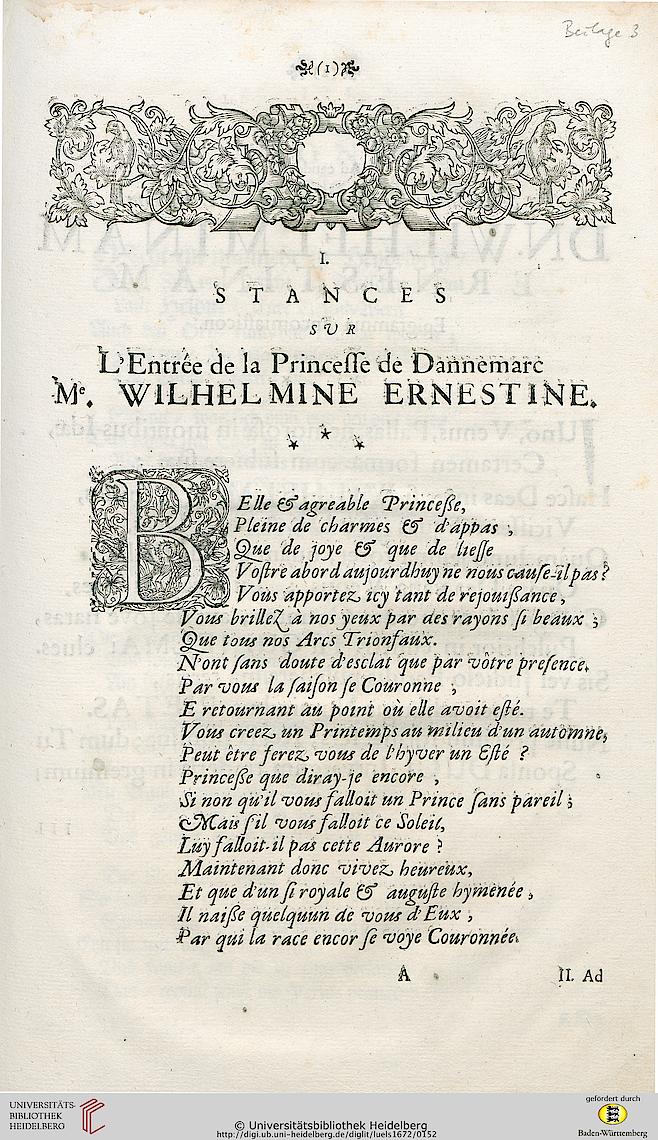 Beilage 3
(1)
I.
STANCES
SUR
L'Entrée de la Princeſſe de Dannemarc
Me. WILHELMINE ERNESTINE.
BElle & agreable Princeße,
Pleine de charmes & d'appas ,
Que de joye & que de lieſſe
Voſtre abord aujourdhuy ne nous cauſe-il pas ?
Vous apportez icy tant de rejouißance ,
Vous brillez à nos yeux par des rayons ſi beaux ;
Que tous nos Arcs Trionfaux.
N'ont ſans doute d'esclat que par vôtre preſence.
Par vous la ſaiſon ſe Couronne ,
E retournant au point où elle avoit eſté.
Vous creez un Printemps au milieu d'un automne,
Peut être ferez vous de l'hyver un Eſté ?
Princeße que diray-je encore ,
Si non qu'il vous falloit un Prince ſans pareil ;
Mais ſ'il vous falloit ce Soleil,
Luy falloit-il pas cette Aurore ?
Maintenant donc vivez heureux,
Et que d'un ſi royale & auguſte hymenée ,
Il naiße quelquun de vous d'Eux ,
Par qui la race encor ſe voye Couronnée.
A II. Ad
UNIVERSITÄTS-
BIBLIOTHEK
HEIDELBERG
© Universitätsbibliothek Heidelberg
http://digi.ub.uni-heidelberg.de/diglit/luels1672/0152
gefördert durch
Baden-Württemberg